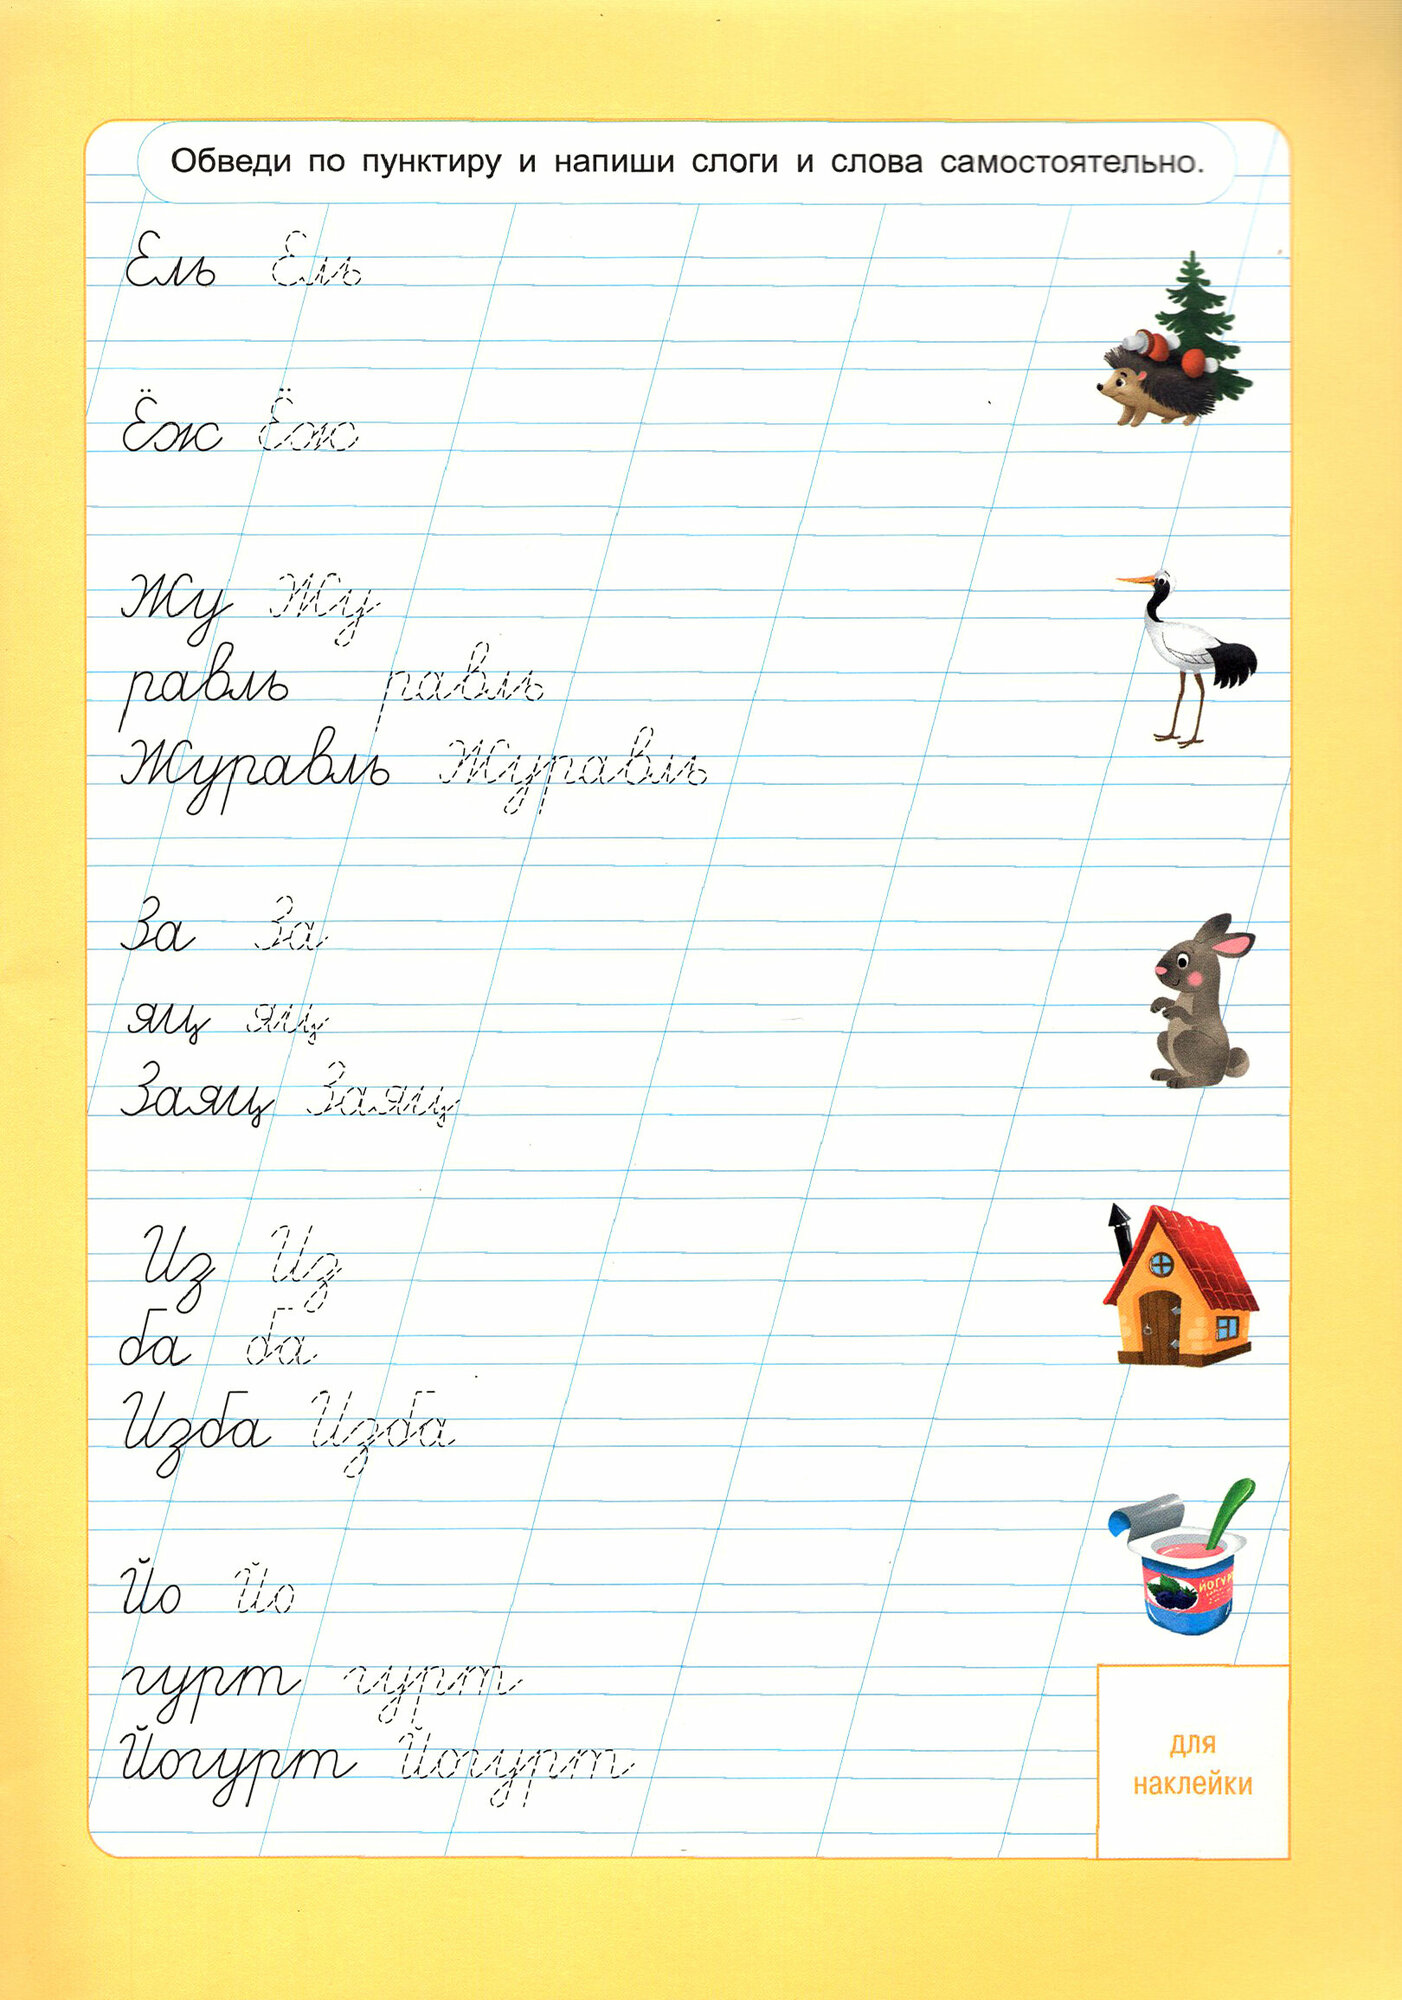 Обведи по пунктиру и напиши слоги и слова самостоятельно.
Ель Ель
Ёж Ёж
Жу Жу
равль равль
Журавль Журавль
За За
яц яц
Заяц Заяц
Из Из
ба ба
Изба Изба
Йо Йо
гурт гурт
Йогурт Йогурт
для
наклейки